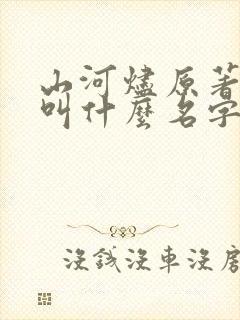 山河燼原著
叫什麼名字
沒錢沒車沒房